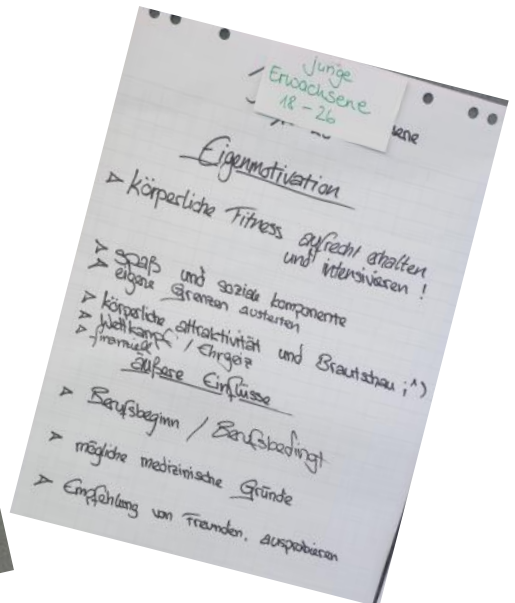 Junge
Erwachsene
18 - 26
ene
Eigenmotivation
▷ körperliche Fitness aufrecht erhalten
und intensivieren !
▷ Spaß und soziale Komponente
▷ eigene Grenzen austesten
▷ körperliche attraktivität und Brautschau ;^)
▷ Wettkampf / Ehrgeiz
▷ finanziell
äußere Einflüsse
▷ Berufsbeginn / Berufsbedingt
▷ mögliche medizinische Gründe
▷ Empfehlung von Freunden, ausprobieren